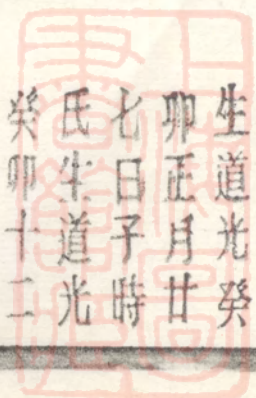 生道光癸
卯正月廿
七日子時
氏生道光
癸卯十二